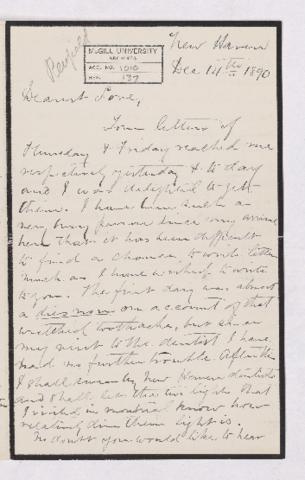 Penfield
McGILL UNIVERSITY
ARCHIVES
ACC. NO. 1010
REF. 137
New Haven
Dec 14th 1890
Dearest Love,
Your letters of
Thursday & Friday reached me
respectively yesterday & to day
and I was delighted to get
them. I have been such a
very busy person since my arrival
here that it has been difficult
to find a chance to write letters
much as I have wished to write
to you. The first day was almost
a dies non on account of that
wretched toothache, but since
my visit to the dentist I have
had no further trouble. After this
I shall swear by New Haven dentists
and shall let the two lights that
I visited in Montreal know how
relatively dim their light is.
No doubt you would like to hear